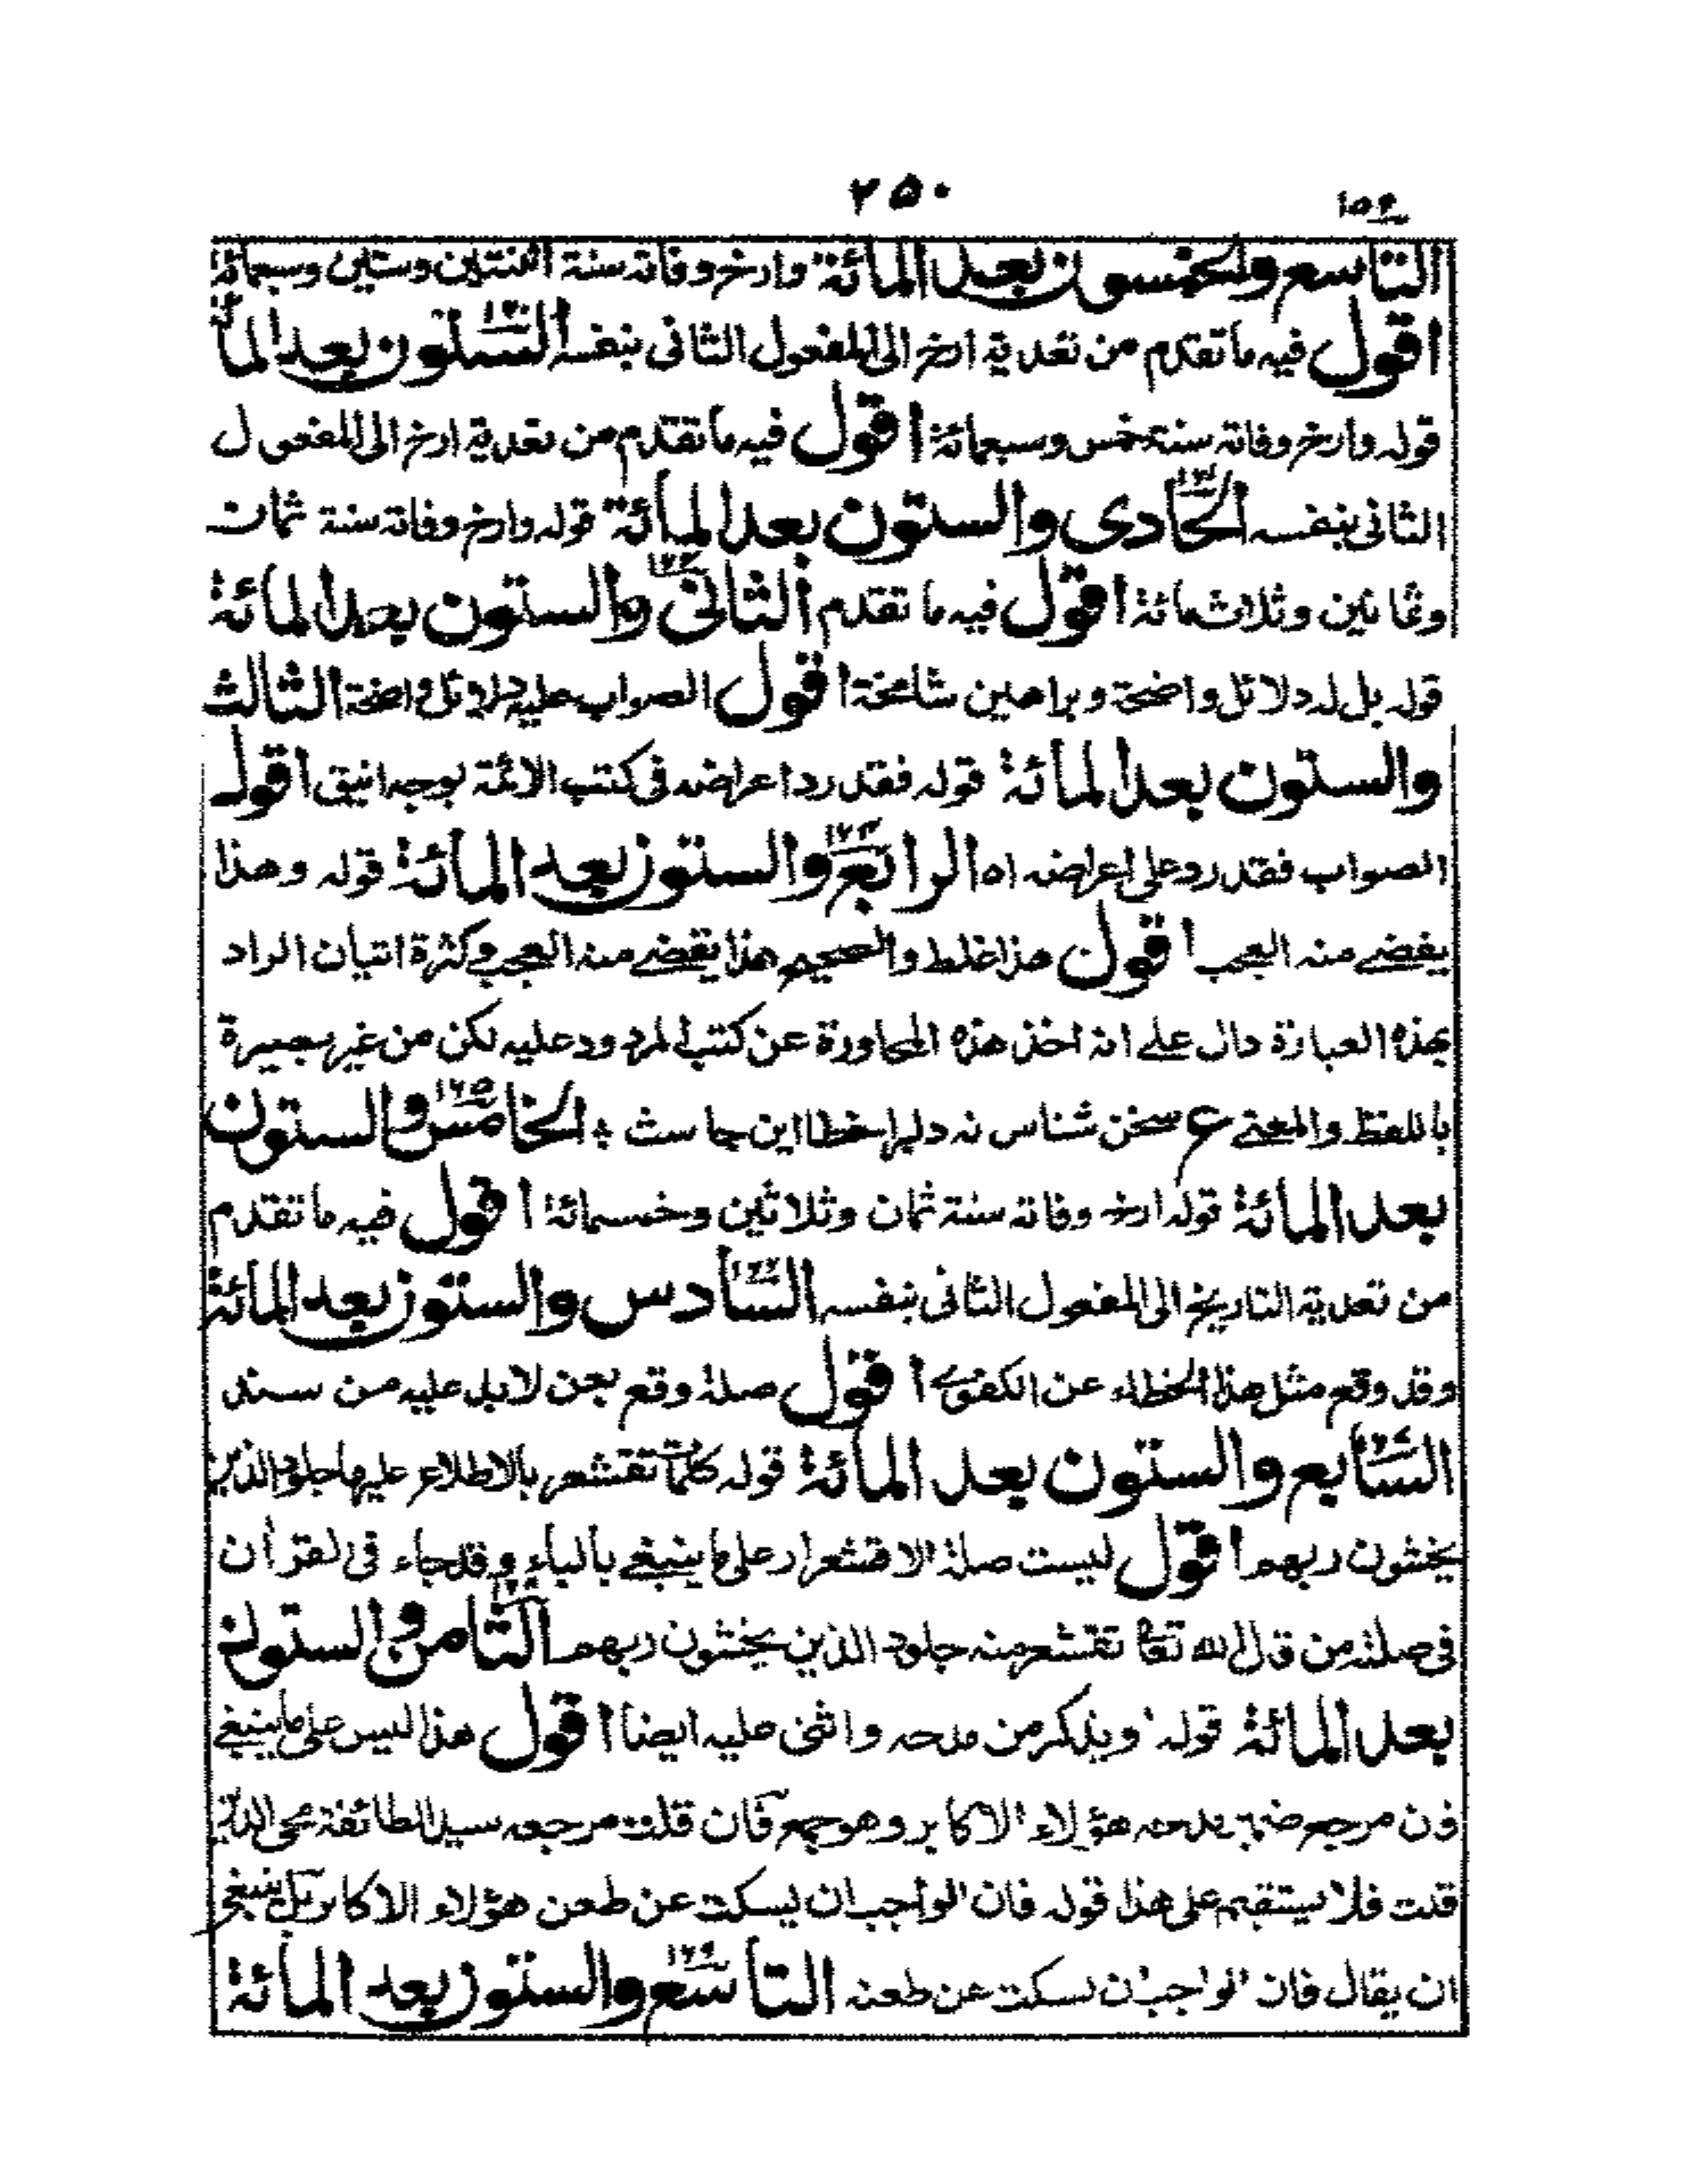 ٢٥٠
١٥٩
التاسع والخمسون بعد المائة وارخ وفاته سنة اثنتين وستين وسبعمائة
اقول فيه ما تقدم من تعدية ارخ الى المفعول الثانى بنفسه الستون بعد المائة
١٦٠
قوله وارخ وفاته سنة خمس وسبعمائة اقول فيه ما تقدم من تعدية ارخ الى المفعول
الثانى بنفسه الحادى والستون بعد المائة قوله وارخ وفاته سنة ثمان
١٦١
وثمانين وثلاث مائة اقول فيه ما تقدم الثانى والستون بعد المائة
١٦٢
قوله بل له دلائل واضحة وبراهين شامخة اقول الصواب عليه دلائل واضحة الثالث
والستون بعد المائة قوله فقد رد اعراضه فى كتب الائمة بوجه انيق اقول
الصواب فقد رد على اعراضه اه الرابع والستون بعد المائة قوله وهذا
١٦٤
يفضے منه العجب اقول هذا غلط والصحيح هذا يقضے منه العجب وكثرة اتيان الراد
بهذه العبارة دال علے انه اخذ هذه المحاورة عن كتب المردود عليه لكن من غير بصيرة
باللفظ والمعنے ع سخن شناس نه دلبرا خطا اين جا ست ٭ الخامس والستون
١٦٥
بعد المائة قوله ارخ وفاته سنة ثمان وثلاثين وخمسمائة اقول فيه ما تقدم
من تعدية التاريخ الى المفعول الثانى بنفسه السادس والستون بعد المائة
١٦٦
وقد وقع مثل هذا الخطاء عن الكفوے اقول صلة وقع بعن لا بد عليه من سند
السابع والستون بعد المائة قوله كلمات تقشعر بالاطلاع عليها جلود الذين
يخشون ربهم اقول ليست صلة الاقشعرار على ما ينبغے بالباء وقد جاء فى القرآن
فى صلته من قال الله تعا تقشعر منه جلود الذين يخشون ربهم الثامن والستون
بعد المائة قوله ويذكر من مدحه واثنى عليه ايضا اقول هذا ليس على ما ينبغے
فان مرجع ضمير مدحه هؤلاء الاكابر وهو جمع فان قلت مرجعه سيد الطائفة محى الدين
قلت فلا يستقيم على هذا قوله فان الواجب ان يسكت عن طعن هؤلاء الاكابر بل ينبغے
ان يقال فان الواجب ان يسكت عن طعنه التاسع والستون بعد المائة
١٦٩